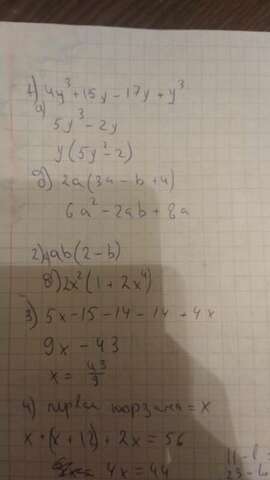 1) 4y³+15y-17y+y³
а)
5y³-2y
y(5y²-2)
б) 2a(3a-b+4)
6a²-2ab+8a
2) 4ab(2-b)
в) 2x²(1+2x⁴)
3) 5x-15-14-14+4x
9x-43
x = 43/9
4) первая корзина = x
x+(x+12)+2x=56
4x=44